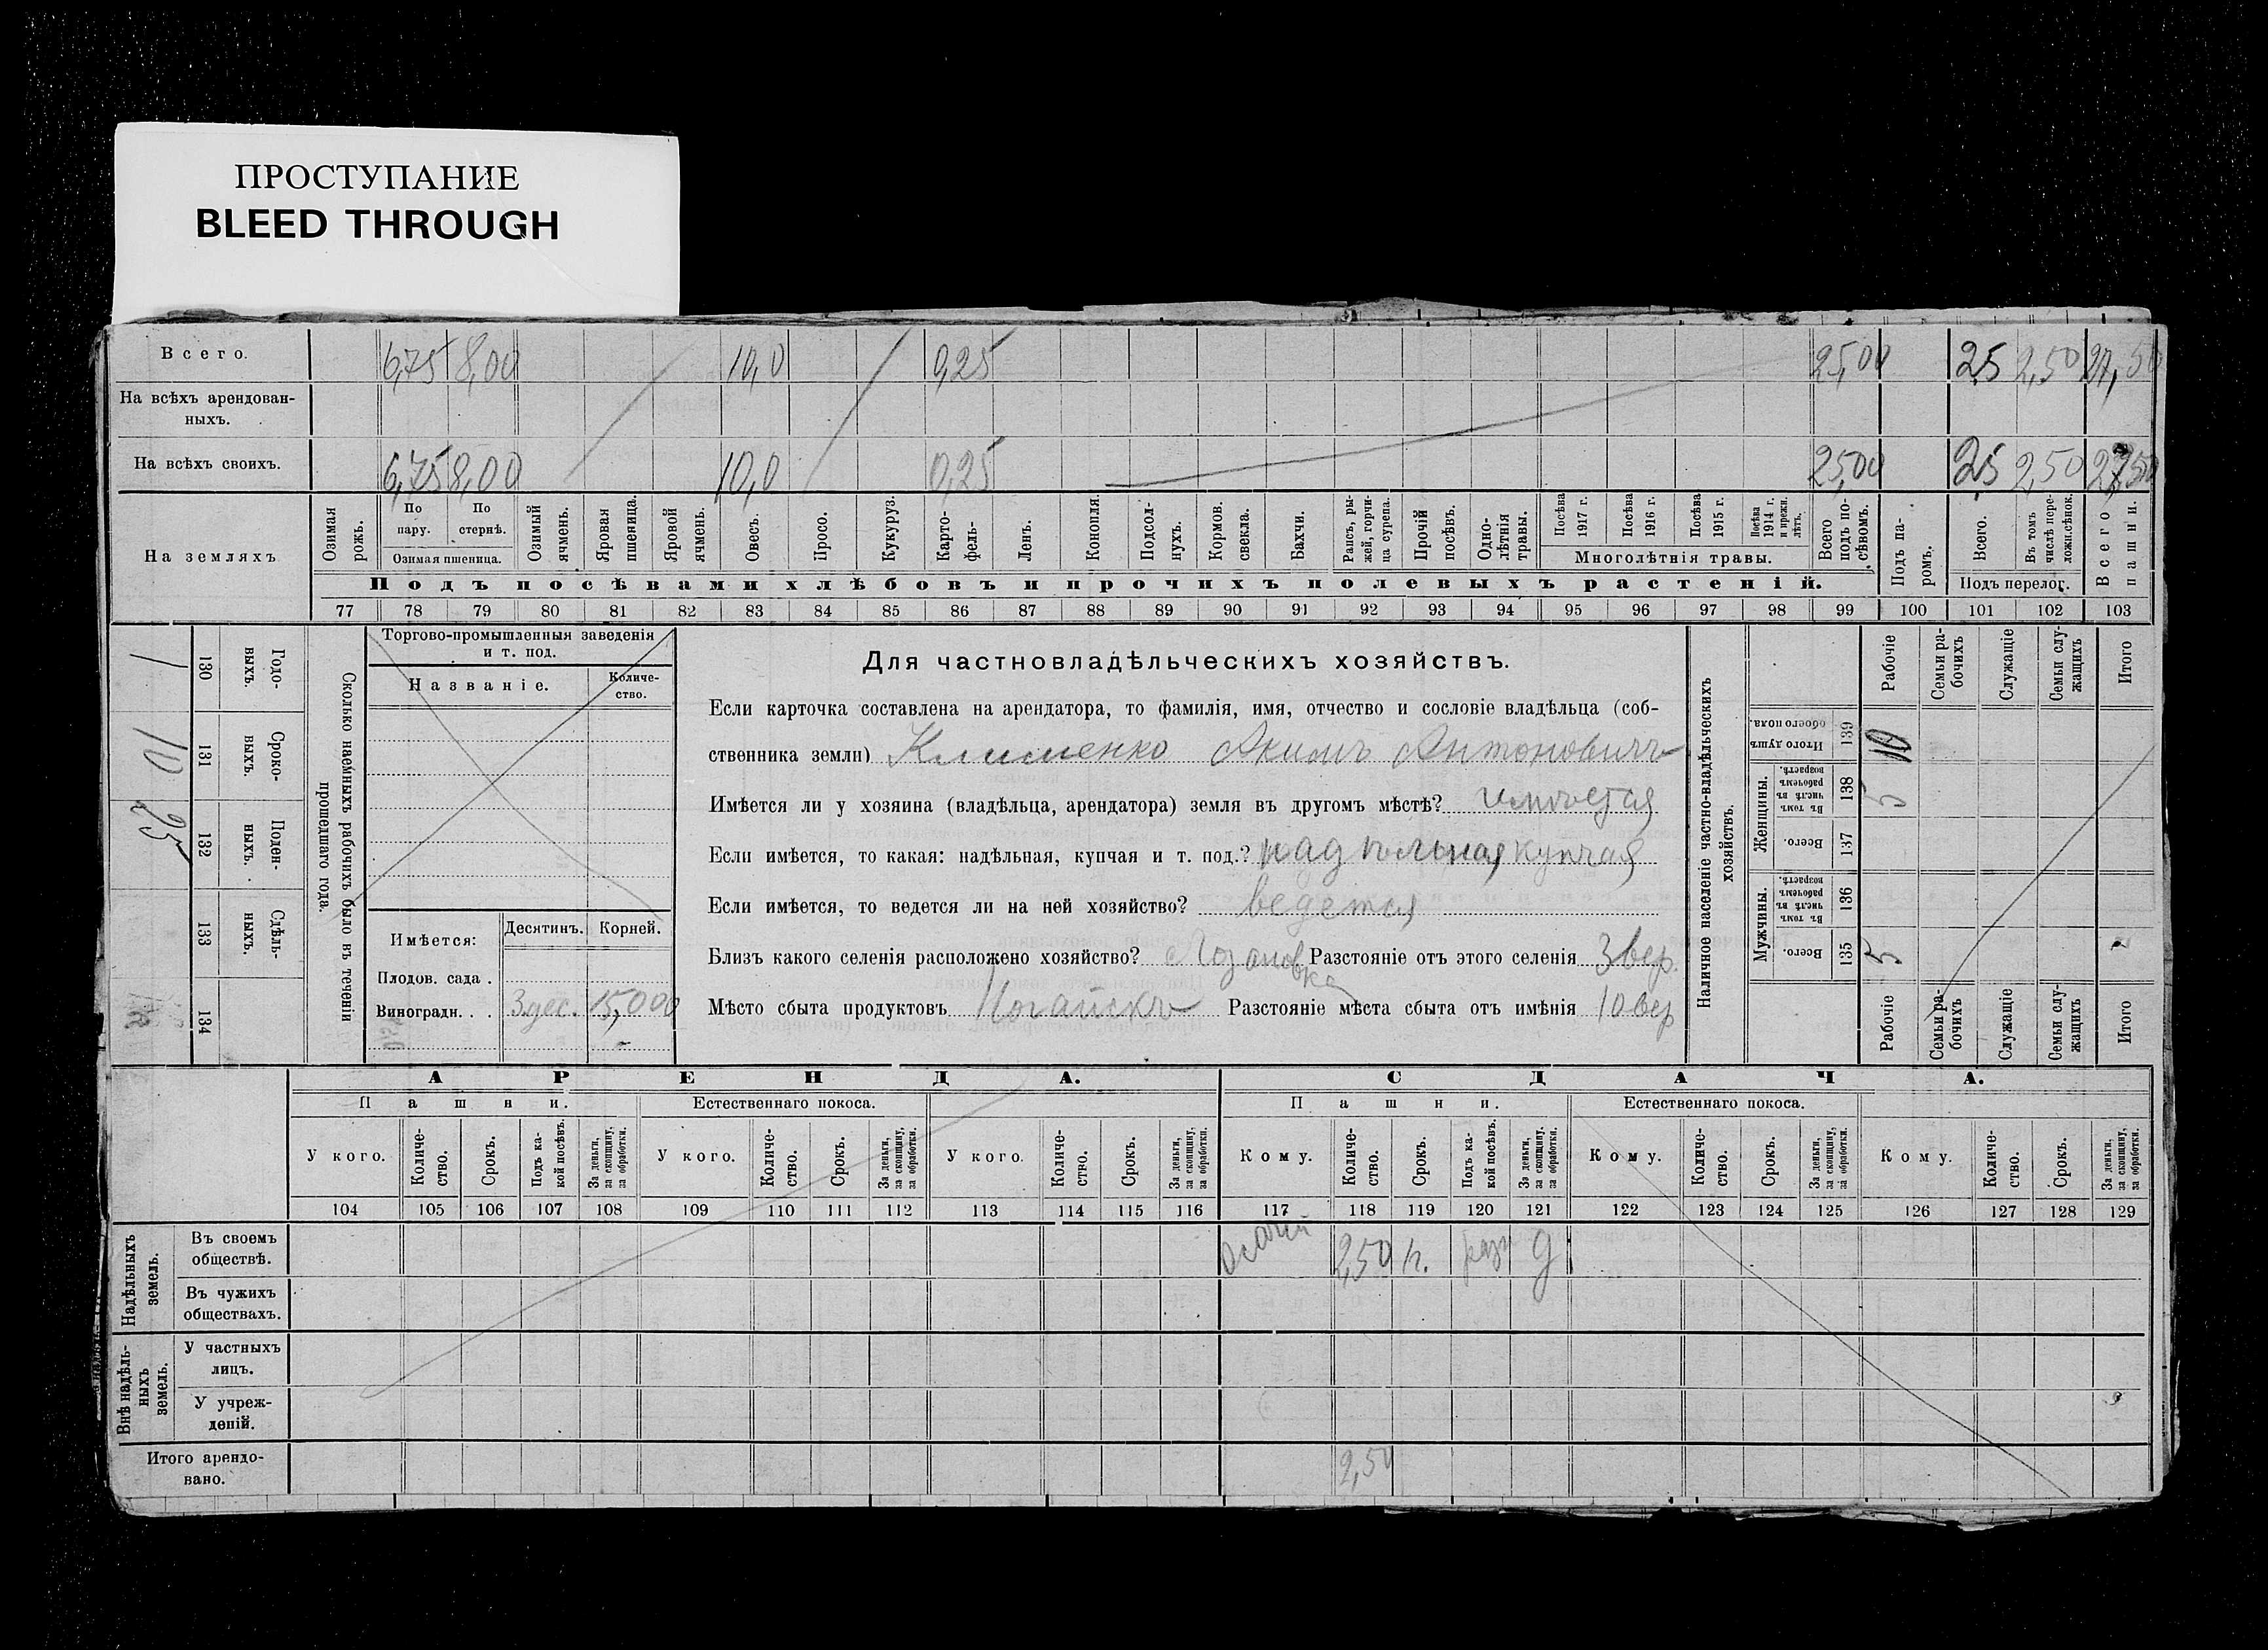 ПРОСТУПАНИЕ
BLEED THROUGH
Всего. 6,75 8,00 10,0 0,25 25,00 25 2,50 27,50
На всѣхъ арендован-
ныхъ.
На всѣхъ своихъ. 6,75 8,00 10,0 0,25 25,00 25 2,50 27,50
На земляхъ
Озимая рожь.
По пару.
По стернѣ.
Озимая пшеница.
Озимый ячмень.
Яровая пшеница.
Яровой ячмень.
Овесъ.
Просо.
Кукуруз.
Карто-
фель-
Ленъ.
Конопля.
Подсол-
нухъ.
Кормов. свекла.
Бахчи.
Рапсъ, ры-
жей, горчи-
ца сурепа.
Прочій посѣвъ.
Одно-
лѣтнія травы.
Посѣва 1917 г.
Посѣва 1916 г.
Посѣва 1915 г.
Посѣва 1914 г. и прежн. лѣтъ.
Многолѣтнія травы.
Всего подъ по-
сѣвомъ.
Подъ па-
ромъ.
Всего.
Въ томъ числѣ пере-
ложн. сѣнок.
Подъ перелог.
Всего пашни.
Подъ посѣвами хлѣбовъ и прочихъ полевыхъ растеній.
77 78 79 80 81 82 83 84 85 86 87 88 89 90 91 92 93 94 95 96 97 98 99 100 101 102 103
1 130 Годо-
выхъ.
10 131 Сроко-
выхъ.
25 132 Поден-
ныхъ.
133 Сдѣль-
ныхъ.
134
Сколько наемныхъ рабочихъ было въ теченіи
прошедшаго года.
Торгово-промышленныя заведенія
и т. под.
Названіе.
Количе-
ство.
Имѣется: Десятинъ. Корней.
Плодов. сада .
Виноградн. . . 3 дес. 15,000
Для частновладѣльческихъ хозяйствъ.
Если карточка составлена на арендатора, то фамилія, имя, отчество и сословіе владѣльца (соб-
ственника земли) Клименко Акимъ Антоновичъ
Имѣется ли у хозяина (владѣльца, арендатора) земля въ другомъ мѣстѣ? имѣется
Если имѣется, то какая: надѣльная, купчая и т. под.? надѣльная купчая
Если имѣется, то ведется ли на ней хозяйство? ведется
Близъ какого селенія расположено хозяйство? Лозановка Разстояніе отъ этого селенія 3 вер.
Мѣсто сбыта продуктовъ Ногайскъ Разстояніе мѣста сбыта отъ имѣнія 10 вер
Наличное населеніе частно-владѣльческихъ
хозяйствъ.
Рабочіе
Семьи ра-
бочихъ
Служащіе
Семьи слу-
жащихъ
Итого
Итого душъ обоего пола. 139 10
Женщины.
Въ томъ числѣ въ рабочемъ возрастѣ. 138 5
Всего. 137
Мужчины.
Въ томъ числѣ въ рабочемъ возрастѣ. 136
Всего. 135 5
Рабочіе
Семьи ра-
бочихъ
Служащіе
Семьи слу-
жащихъ
Итого
АРЕНДА. СДАЧА.
Пашни. Естественнаго покоса. Пашни. Естественнаго покоса.
У кого.
Количе-
ство.
Срокъ.
Подъ ка-
кой посѣвъ.
За деньги, за скопщину, за обработки.
У кого.
Количе-
ство.
Срокъ.
За деньги, за скопщину, за обработки.
У кого.
Количе-
ство.
Срокъ.
За деньги, за скопщину, за обработки.
Кому.
Количе-
ство.
Срокъ.
Подъ ка-
кой посѣвъ.
За деньги, за скопщину, за обработки.
Кому.
Количе-
ство.
Срокъ.
За деньги, за скопщину, за обработки.
Кому.
Количе-
ство.
Срокъ.
За деньги, за скопщину, за обработки.
104 105 106 107 108 109 110 111 112 113 114 115 116 117 118 119 120 121 122 123 124 125 126 127 128 129
Надѣльныхъ
земель.
Въ своемъ
обществѣ. 2,50 д
Въ чужихъ
обществахъ.
Внѣ надѣль-
ныхъ
земель.
У частныхъ
лицъ.
У учреж-
деній.
Итого арендо-
вано. 2,50